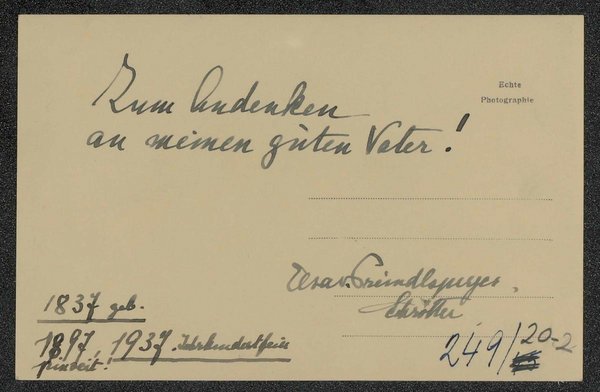 Zum Andenken
an meinen guten Vater!
Echte
Photographie
1837 geb.
1897, 1937 Jahrhundertfeier
249/20-2